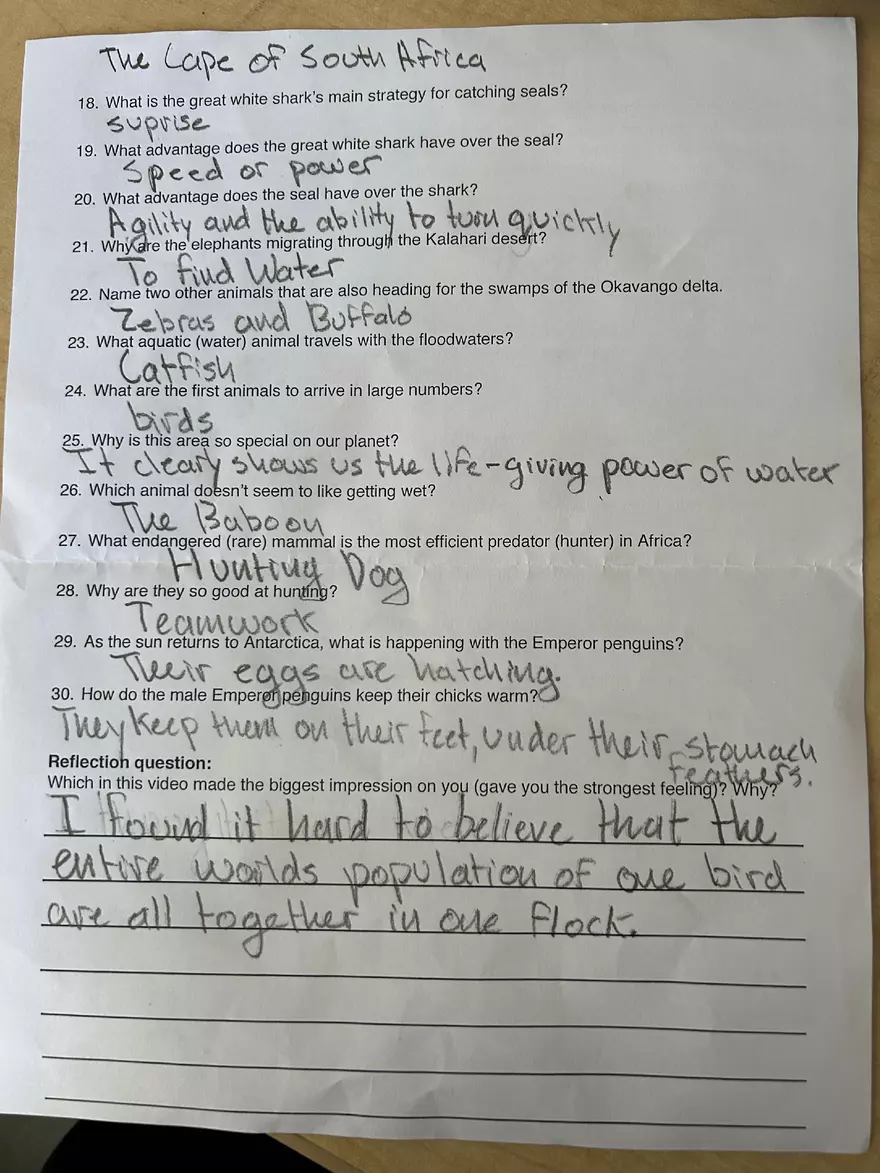 The Cape of South Africa
18. What is the great white shark's main strategy for catching seals?
suprise
19. What advantage does the great white shark have over the seal?
Speed or power
20. What advantage does the seal have over the shark?
Agility and the ability to turn quickly
21. Why are the elephants migrating through the Kalahari desert?
To find Water
22. Name two other animals that are also heading for the swamps of the Okavango delta.
Zebras and Buffalo
23. What aquatic (water) animal travels with the floodwaters?
Catfish
24. What are the first animals to arrive in large numbers?
birds
25. Why is this area so special on our planet?
It clearly shows us the life-giving power of water
26. Which animal doesn't seem to like getting wet?
The Baboon
27. What endangered (rare) mammal is the most efficient predator (hunter) in Africa?
Hunting Dog
28. Why are they so good at hunting?
Teamwork
29. As the sun returns to Antarctica, what is happening with the Emperor penguins?
Their eggs are hatching.
30. How do the male Emperor penguins keep their chicks warm?
They keep them on their feet, under their stomach
feathers.
Reflection question:
Which in this video made the biggest impression on you (gave you the strongest feeling)? Why?
I found it hard to believe that the
entire worlds population of one bird
are all together in one flock.